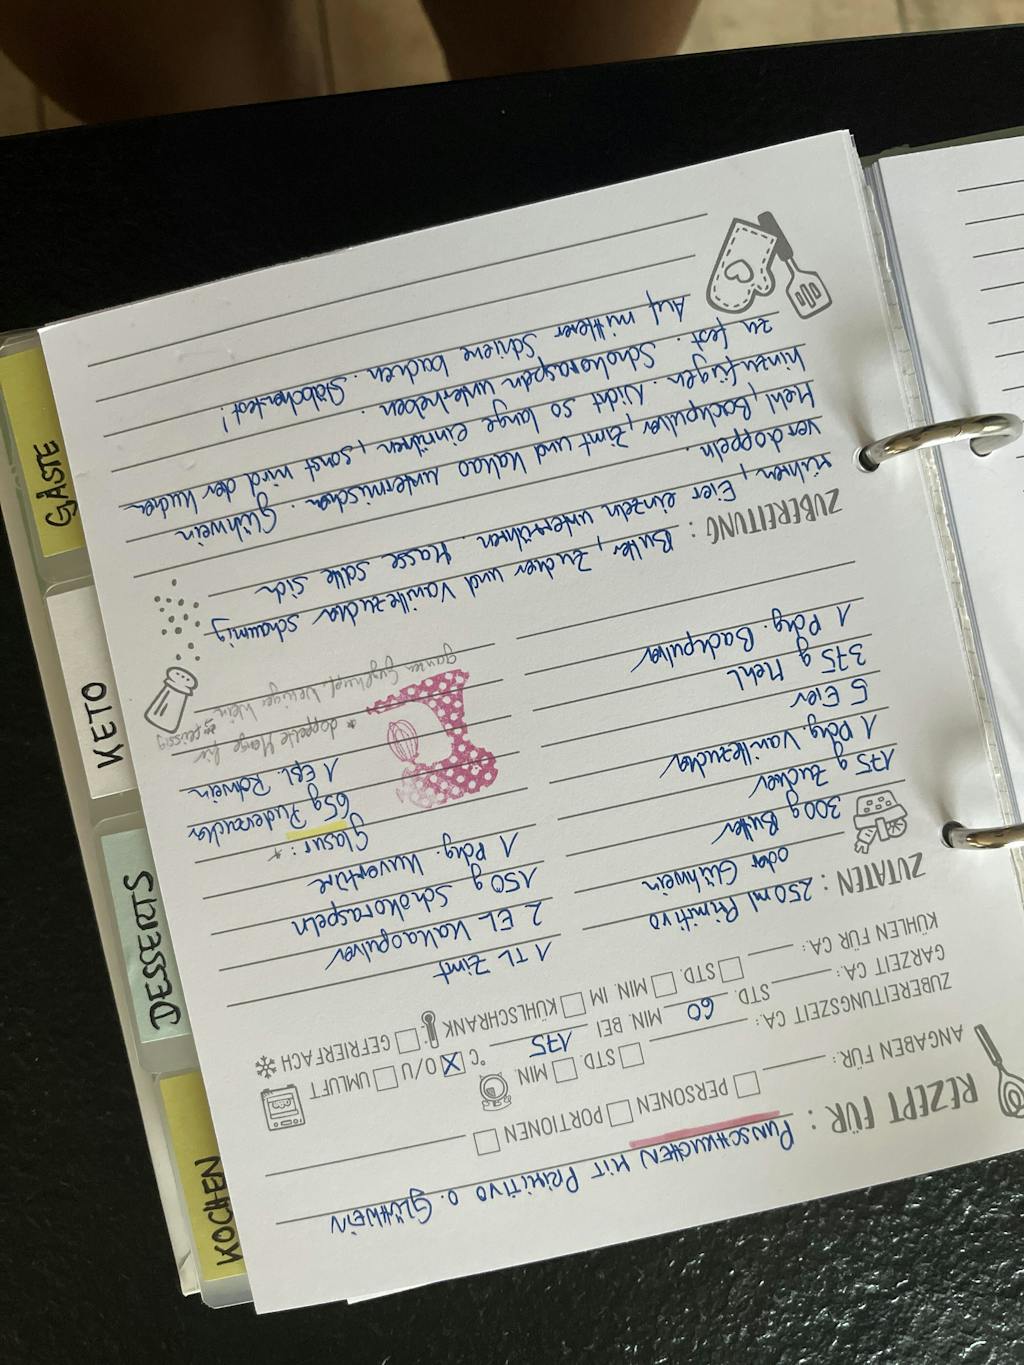 REZEPT FÜR: PUNSCHKUCHEN MIT PRIMITIVO O. GLÜHWEIN
ANGABEN FÜR: PERSONEN PORTIONEN
ZUBEREITUNGSZEIT CA.: STD. MIN.
GARZEIT CA: STD. 60 MIN. BEI 175 °C X O/U UMLUFT
KÜHLEN FÜR CA: STD. MIN. IM KÜHLSCHRANK GEFRIERFACH
ZUTATEN:
250 ml Primitivo
oder Glühwein
300g Butter
175 g Zucker
1 Pckg. Vanillezucker
5 Eier
375 g Mehl
1 Pckg. Backpulver
1 TL Zimt
2 EL Kakaopulver
150 g Schokoraspeln
1 Pckg. Kuvertüre
Glasur: *
65g Puderzucker
1 Eßl. Rotwein
* doppelte Menge für
ganzen Gugelhupf. Weniger Wein
ZUBEREITUNG: Butter, Zucker und Vanillezucker schaumig
rühren, Eier einzeln unterrühren. Masse sollte sich
verdoppeln.
Mehl, Backpulver, Zimt und Kakao untermischen. Glühwein
hinzufügen. Nicht so lange einrühren, sonst wird der Kuchen
zu fest. Schokoraspeln unterheben.
Auf mittlerer Schiene backen. Stäbchentest!
GÄSTE
KETO
DESSERTS
KOCHEN